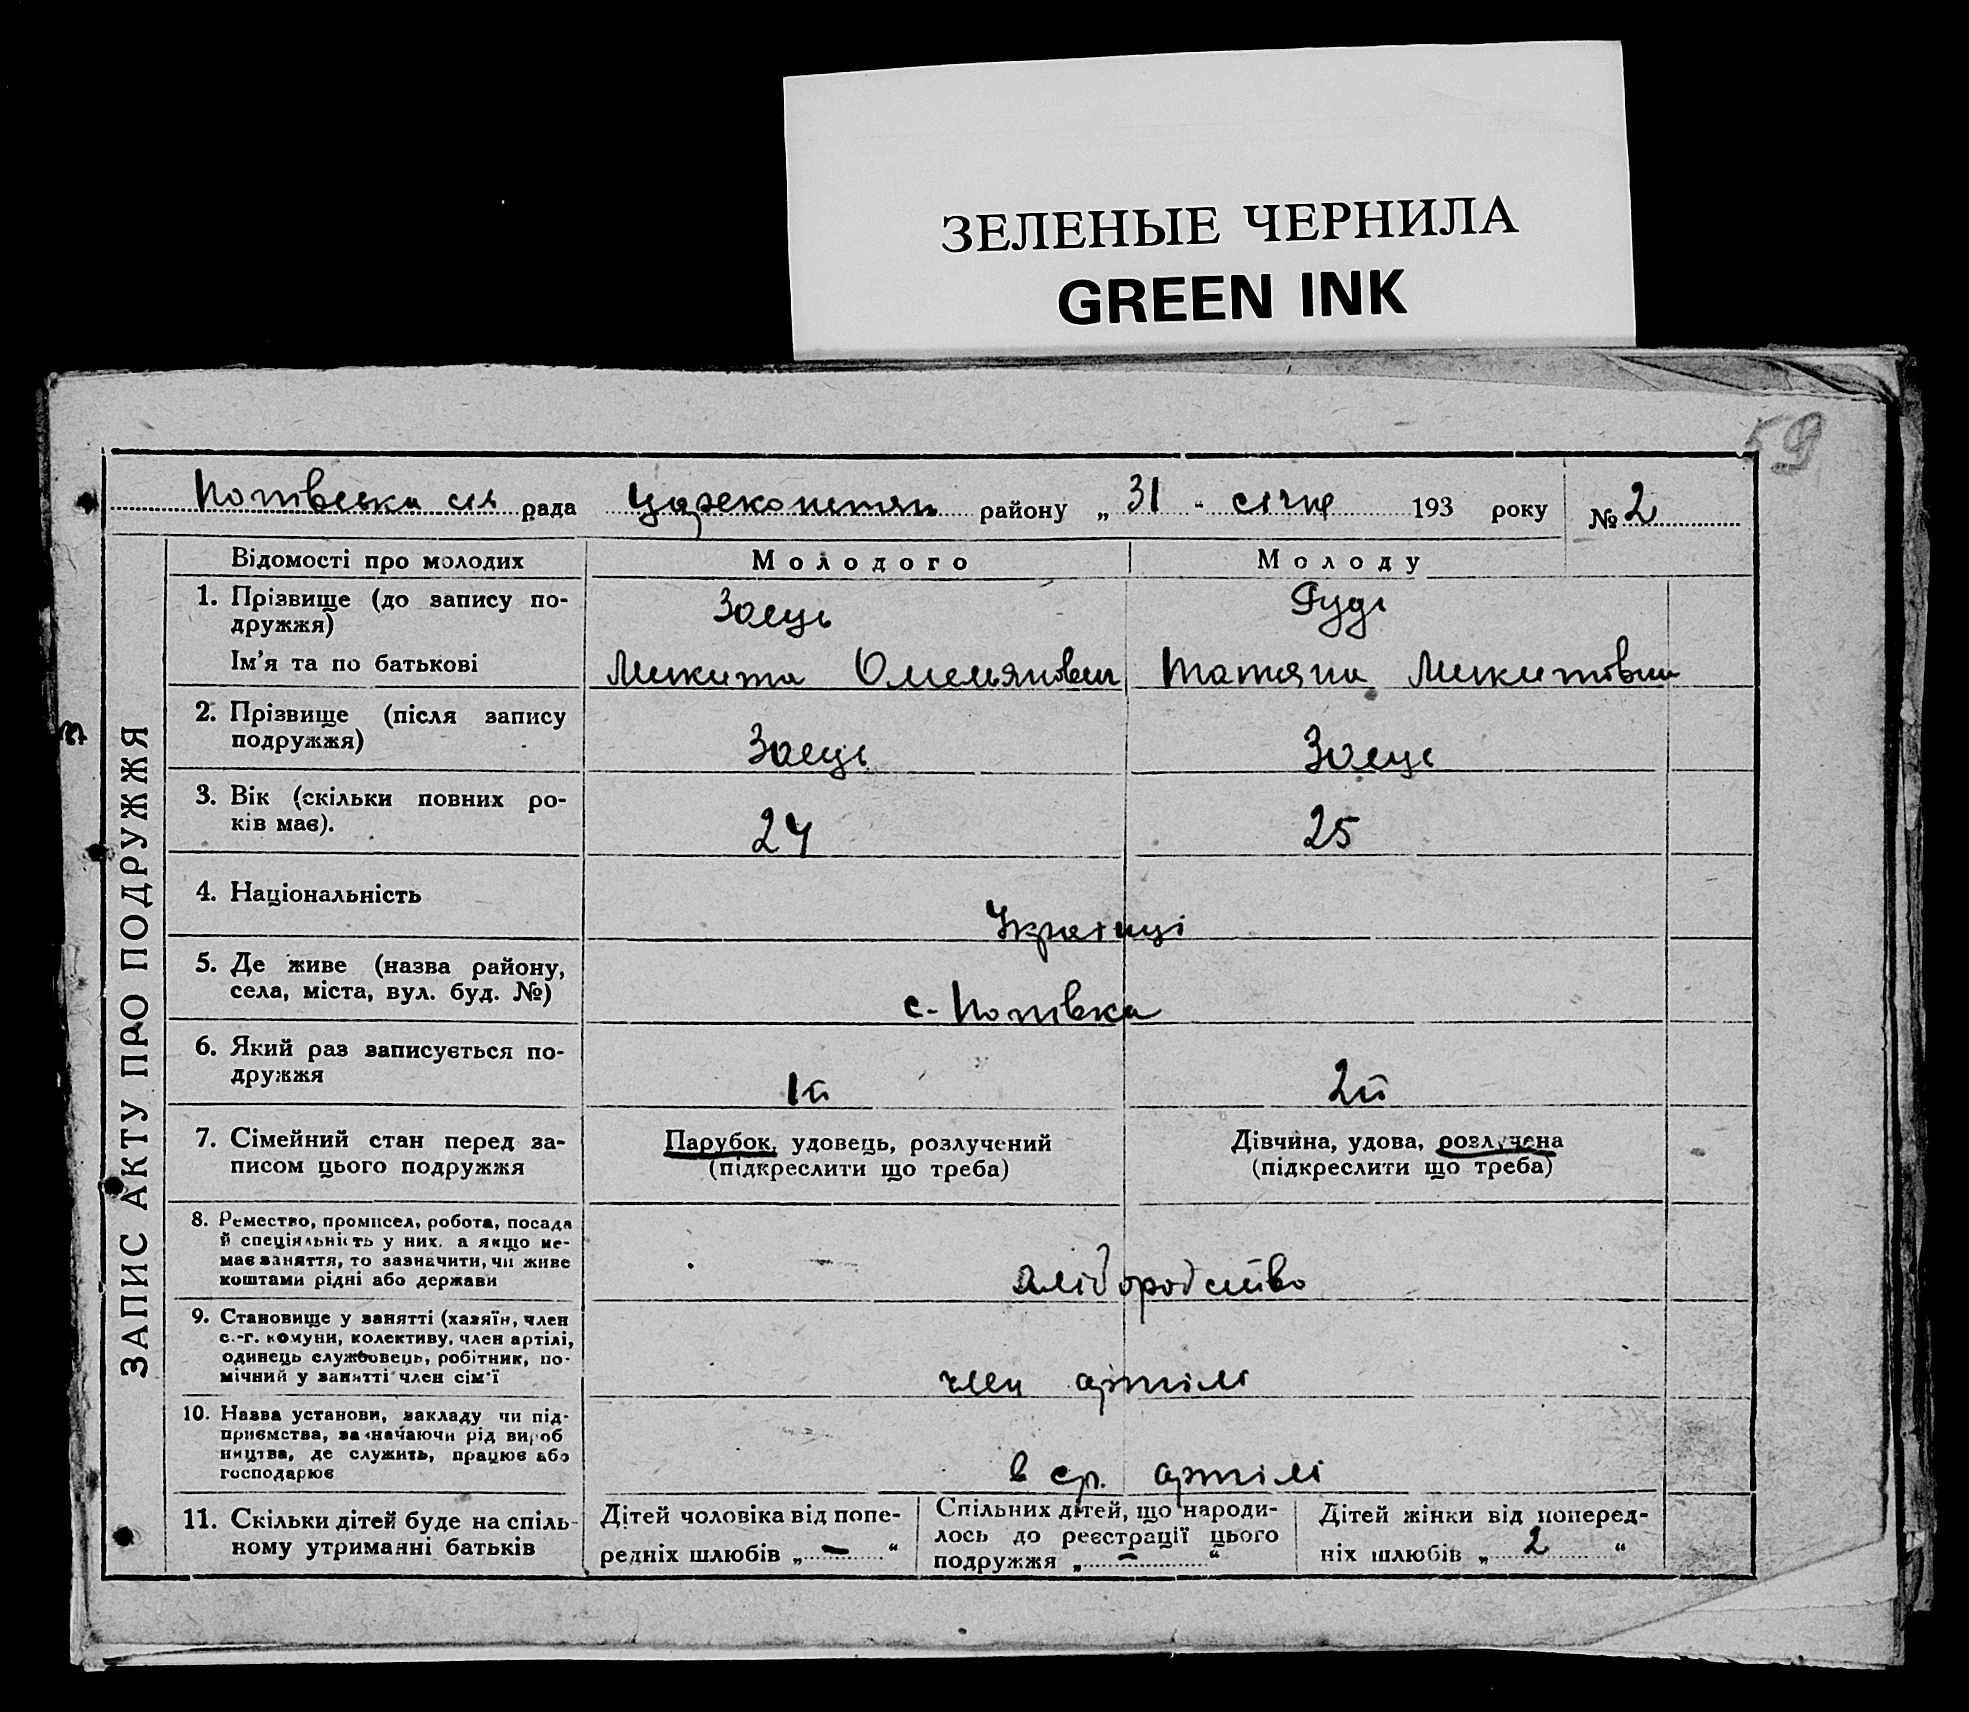 ЗЕЛЕНЫЕ ЧЕРНИЛА
GREEN INK
59
Потівська сіл рада Царекостян району „ 31 " січня 193 року № 2
ЗАПИС АКТУ ПРО ПОДРУЖЖЯ
Відомості про молодих Молодого Молоду
1. Прізвище (до запису по-
дружжя) Заєць Рудь
Ім'я та по батькові Микита Омелянович Татяна Микитовна
2. Прізвище (після запису
подружжя) Заєць Заєць
3. Вік (скільки повних ро-
ків має). 24 25
4. Національність Українці
5. Де живе (назва району,
села, міста, вул. буд. №) с. Потівка
6. Який раз записується по-
дружжя 1й 2й
7. Сімейний стан перед за-
писом цього подружжя
Парубок, удовець, розлучений
(підкреслити що треба)
Дівчина, удова, розлучена
(підкреслити що треба)
8. Ремество, промисел, робота, посада
й спеціяльність у них, а якщо не-
має заняття, то зазначити, чи живе
коштами рідні або держави
хліборобство
9. Становище у занятті (хазяїн, член
с.-г. комуни, колективу, член артілі,
одинець службовець, робітник, по-
мічний у занятті член сім'ї
член артілі
10. Назва установи, закладу чи під-
приємства, зазначаючи рід вироб
ництва, де служить, працює або
господарює
в ср. артілі
11. Скільки дітей буде на спіль-
ному утриманні батьків
Дітей чоловіка від попе-
редніх шлюбів „ — "
Спільних дітей, що народи-
лось до реєстрації цього
подружжя „ — "
Дітей жінки від поперед-
ніх шлюбів „ 2 "